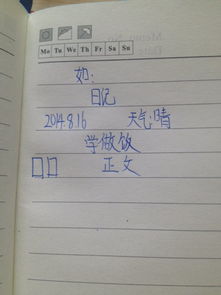 Mo Tu We Th Fr Sa Su
如:
日记
2014.8.16 天气:晴
学做饭
正文